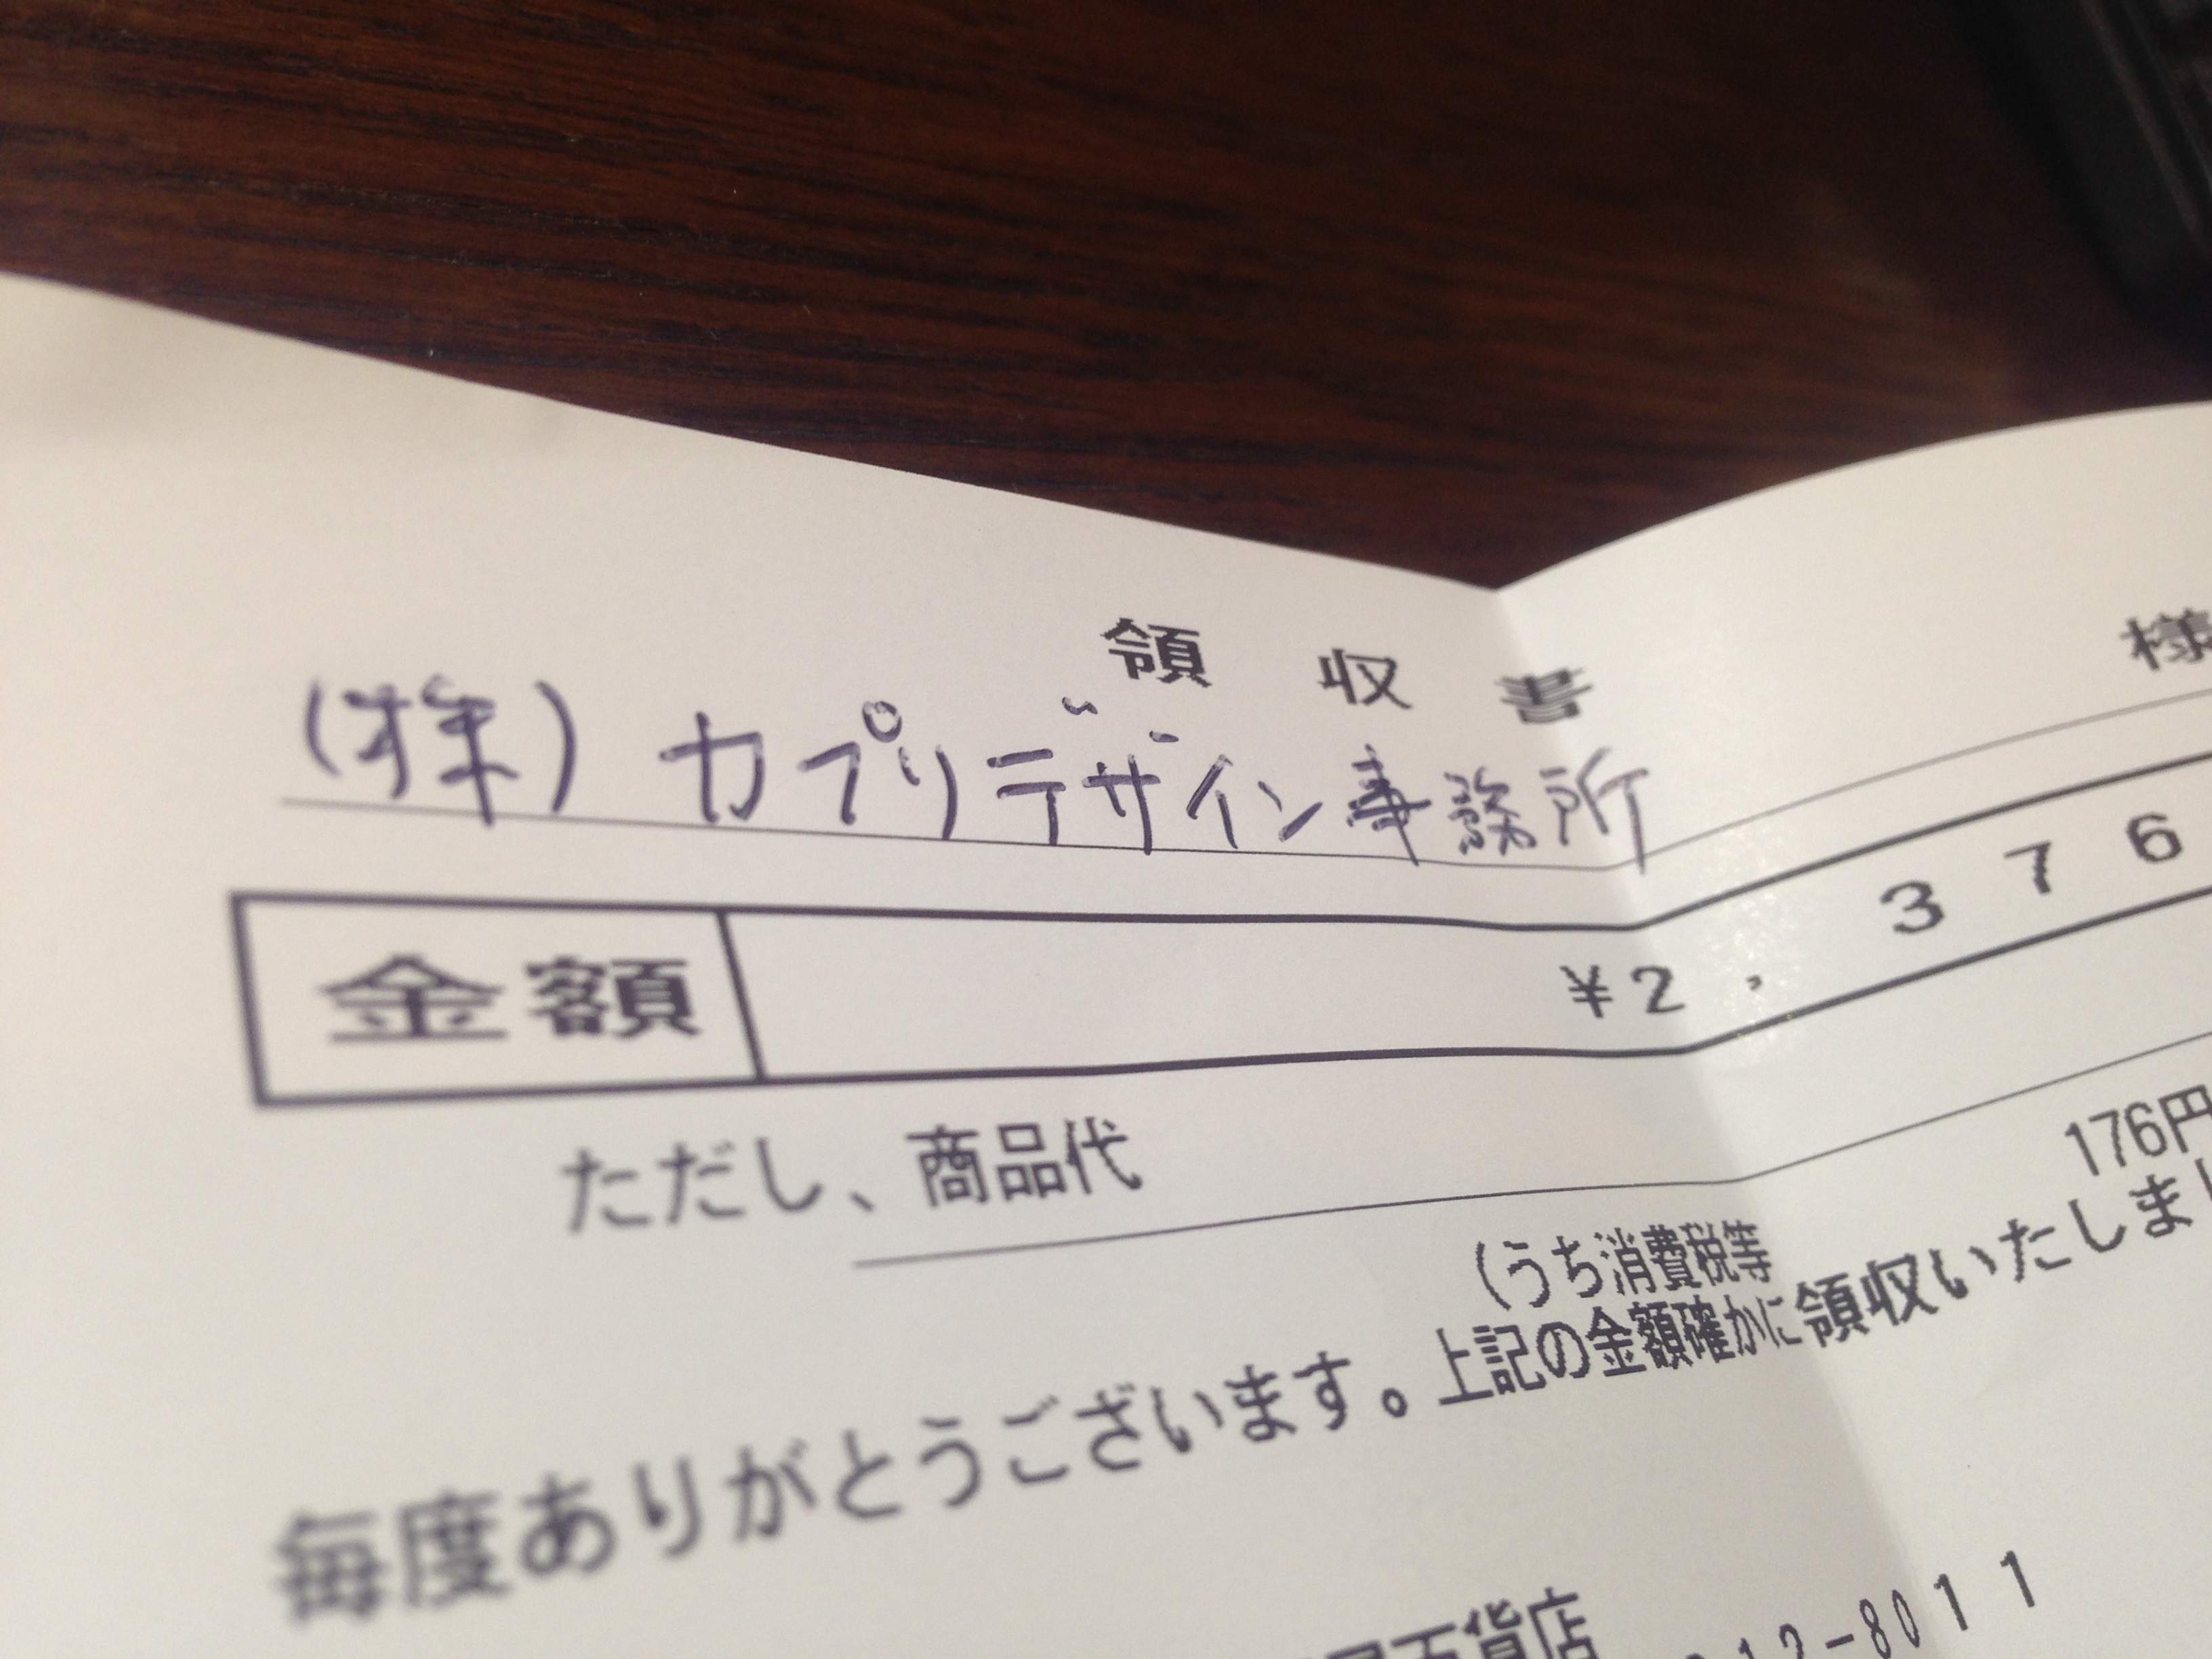 領収書
(株)カプリデザイン事務所 様
金額 ¥2,376
ただし、商品代
(うち消費税等 176円
毎度ありがとうございます。上記の金額確かに領収いたしまし
百貨店
12-8011